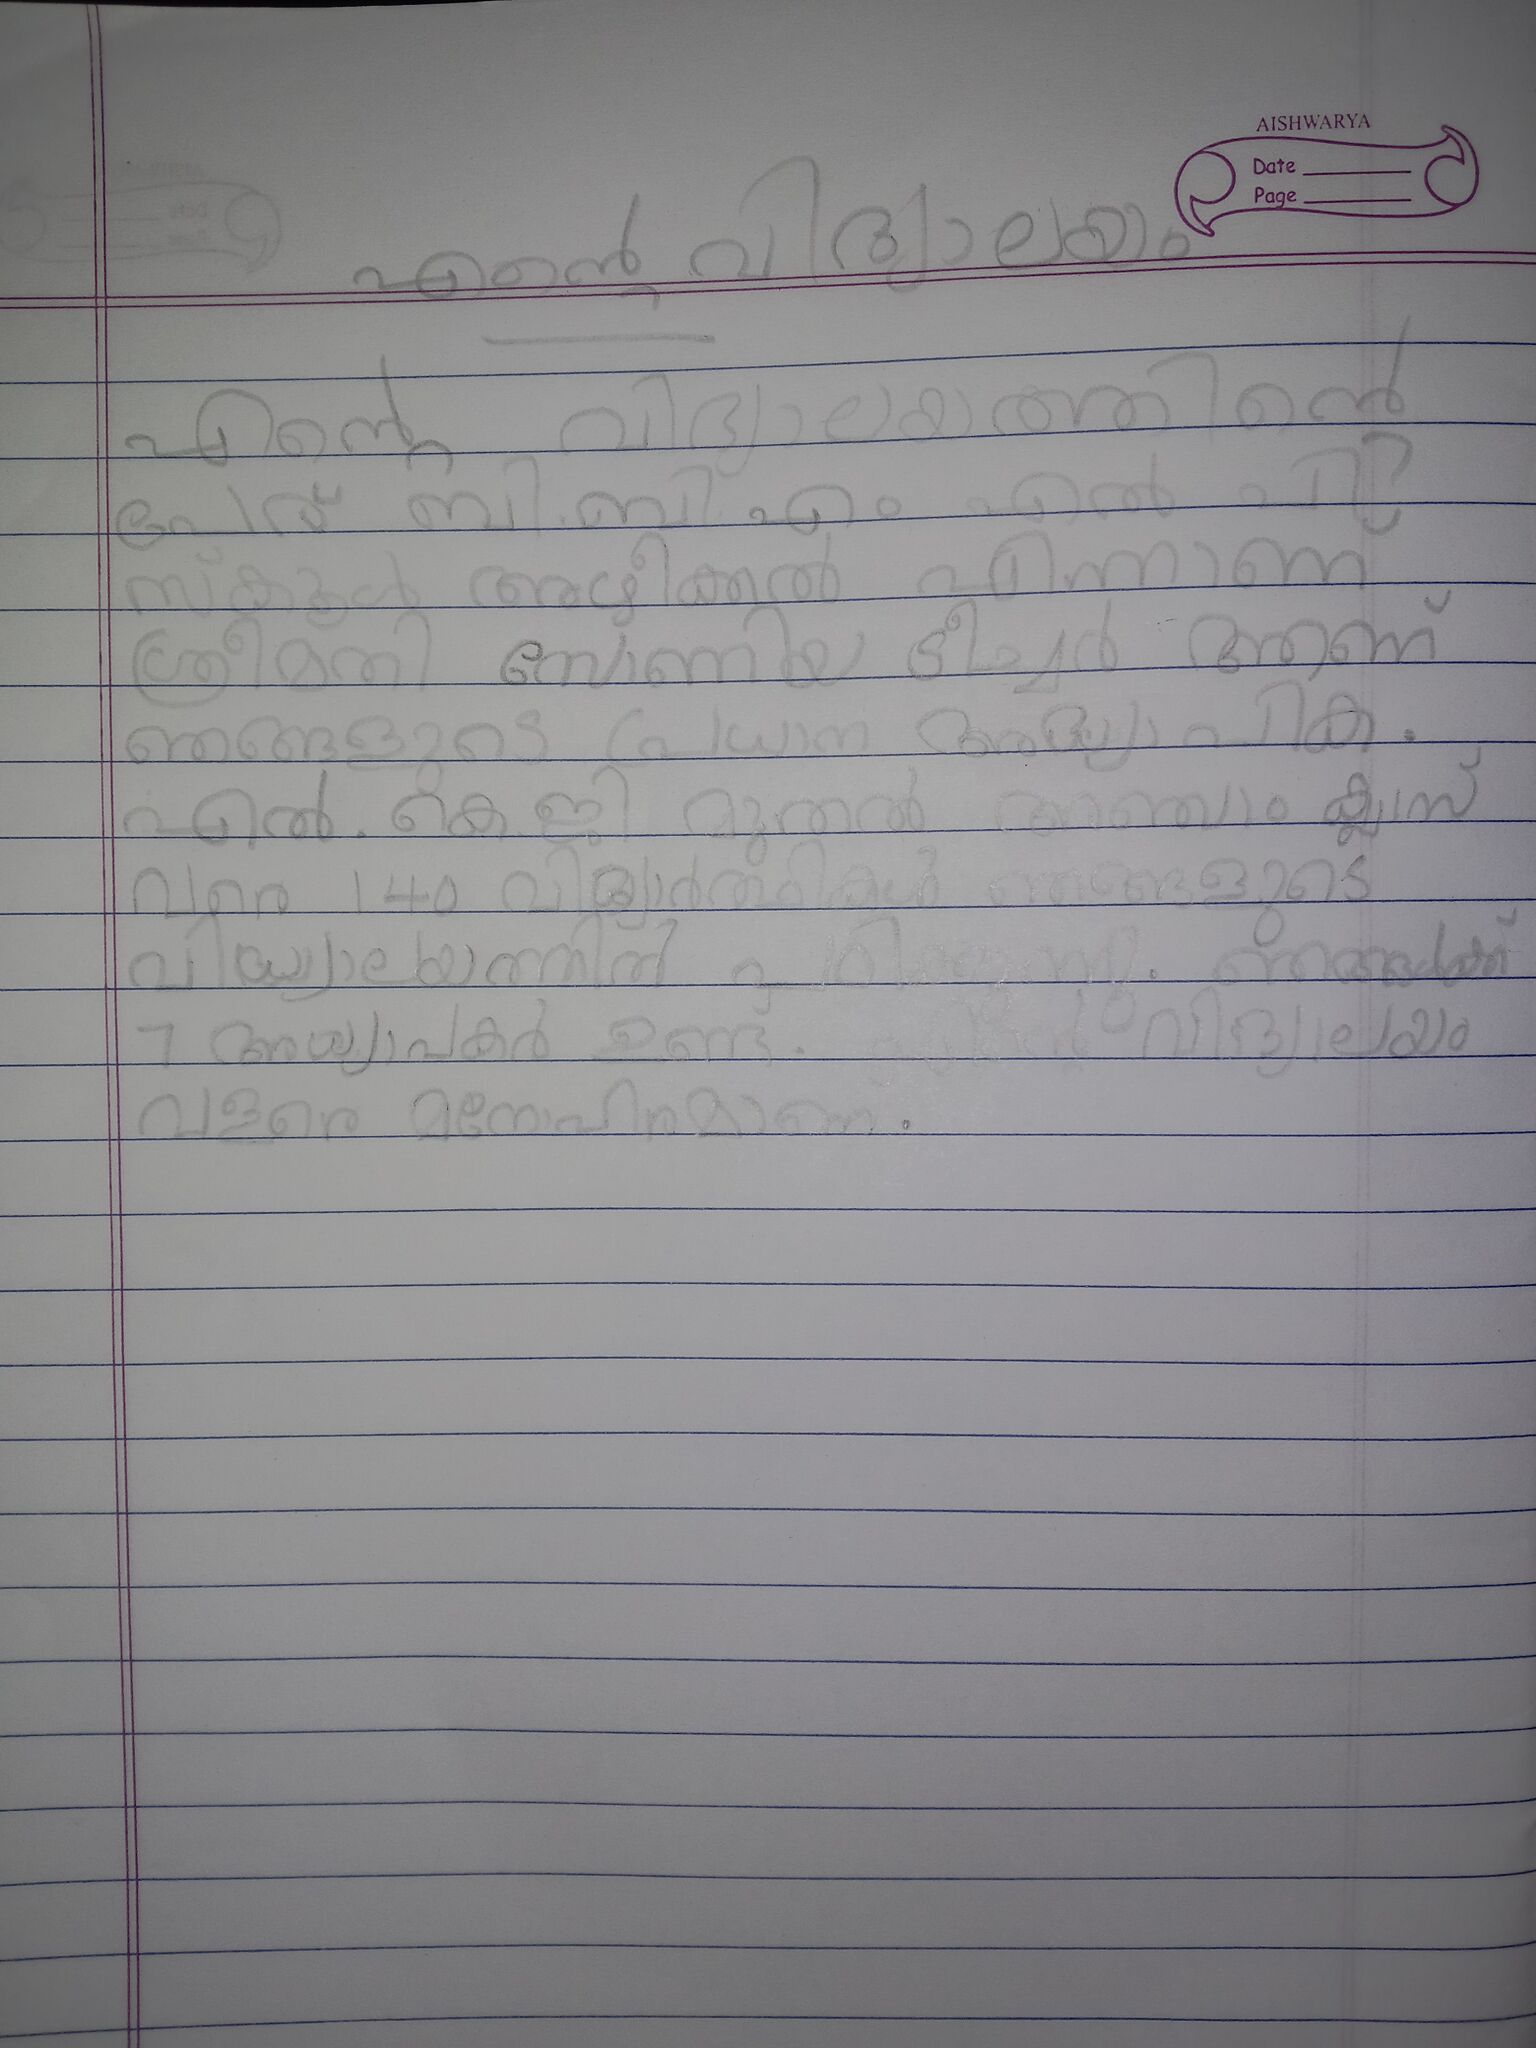 AISHWARYA
Date
Page
എന്റെ വിദ്യാലയം
എന്റെ വിദ്യാലയത്തിന്റെ
പേര് ബി.ബി.എം എൽ പി ജി
സ്കൂൾ അഴീക്കൽ എന്നാണ്
ശ്രീമതി സോണിയ ടീച്ചർ ആണ്
ഞങ്ങളുടെ പ്രധാന അദ്ധ്യാപിക.
എൽ.കെ.ജി മുതൽ അഞ്ചാം ക്ലാസ്
വരെ 140 വിദ്യാർത്ഥികൾ ഞങ്ങളുടെ
വിദ്യാലയത്തിൽ ഞങ്ങൾക്ക്
7 അധ്യാപകർ ഉണ്ട്. എന്റെ വിദ്യാലയം
വളരെ മനോഹരമാണ്.